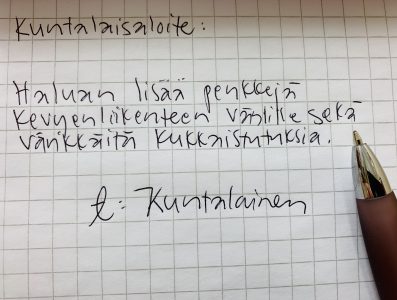 Kuntalaisaloite:
Haluan lisää penkkejä
kevyenliikenteen väylille sekä
värikkäitä kukkaistutuksia.
t: Kuntalainen